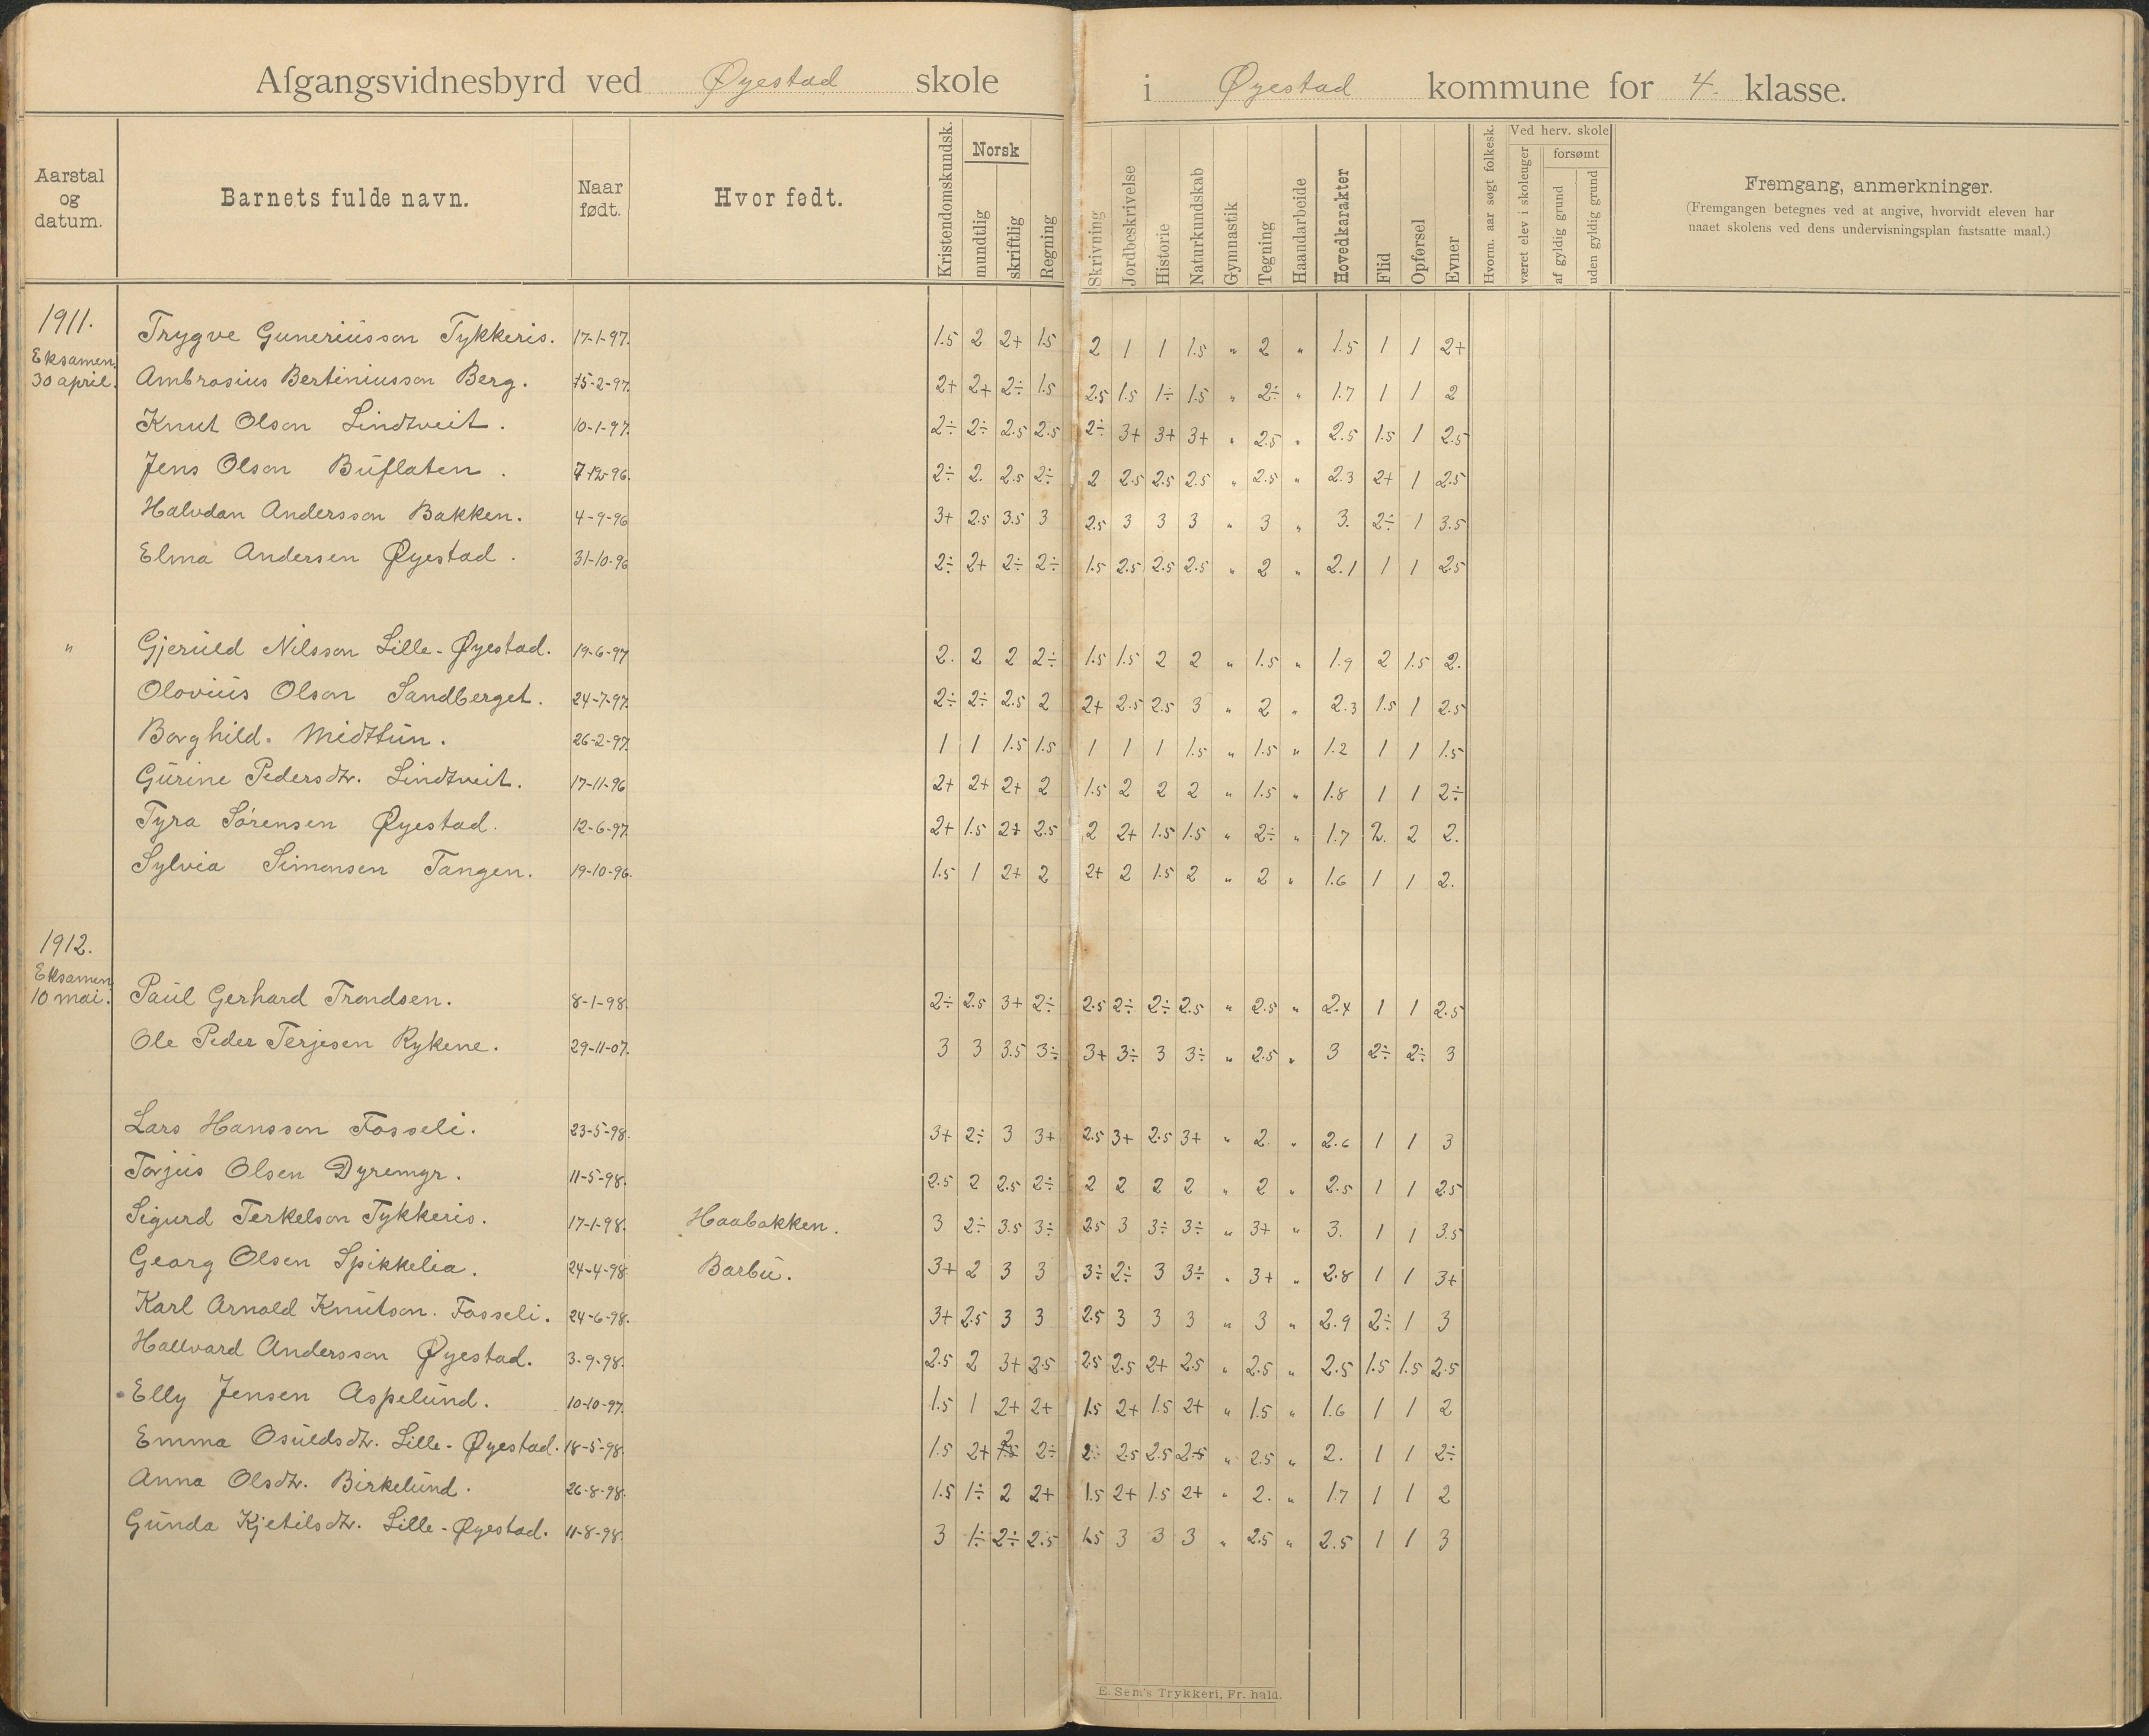 Afgangsvidnesbyrd ved Øyestad skole i Øyestad kommune for 4. klasse.
Aarstal og datum.
Barnets fulde navn.
Naar født.
Hvor født.
Kristendomskundsk.
Norsk
mundtlig
skriftlig
Regning
Skrivning
Jordbeskrivelse
Historie
Naturkundskab
Gymnastik
Tegning
Haandarbeide
Hovedkarakter
Flid
Opførsel
Evner
Hvorm. aar søgt folkesk.
Ved herv. skole
været elev i skoleuger
forsømt
af gyldig grund
uden gyldig grund
Fremgang, anmerkninger.
(Fremgangen betegnes ved at angive, hvorvidt eleven har
naaet skolens ved dens undervisningsplan fastsatte maal.)
1911.
Eksamen
30 april.
Trygve Guneriusson Tykkeris. 17-1-97. 1.5 2 2+ 1.5 2 1 1 1.5 " 2 " 1.5 1 1 2+
Ambrosius Bertiniusson Berg. 15-2-97. 2+ 2+ 2÷ 1.5 2.5 1.5 1÷ 1.5 " 2÷ " 1.7 1 1 2
Knut Olson Lindtveit. 10-1-97. 2÷ 2÷ 2.5 2.5 2÷ 3+ 3+ 3+ " 2.5 " 2.5 1.5 1 2.5
Jens Olson Buflaten. 7-12-96. 2÷ 2. 2.5 2÷ 2 2.5 2.5 2.5 " 2.5 " 2.3 2+ 1 2.5
Halvdan Andersson Bakken. 4-9-96 3+ 2.5 3.5 3 2.5 3 3 3 " 3 " 3. 2÷ 1 3.5
Elma Andersen Øyestad. 31-10-96 2÷ 2+ 2÷ 2÷ 1.5 2.5 2.5 2.5 " 2 " 2.1 1 1 2.5
" Gjeruld Nilsson Lille-Øyestad. 19-6-97 2. 2 2 2÷ 1.5 1.5 2 2 " 1.5 " 1.9 2 1.5 2.
Olovius Olson Sandberget. 24-7-97. 2÷ 2÷ 2.5 2 2+ 2.5 2.5 3 " 2 " 2.3 1.5 1 2.5
Borghild. Midttun. 26-2-97. 1 1 1.5 1.5 1 1 1 1.5 " 1.5 " 1.2 1 1 1.5
Gurine Pedersdtr. Lindtveit. 17-11-96 2+ 2+ 2+ 2 1.5 2 2 2 " 1.5 " 1.8 1 1 2÷
Tyra Sørensen Øyestad. 12-6-97. 2+ 1.5 2+ 2.5 2 2+ 1.5 1.5 " 2÷ " 1.7 2. 2 2.
Sylvia Simonsen Tangen. 19-10-96. 1.5 1 2+ 2 2+ 2 1.5 2 " 2 " 1.6 1 1 2.
1912.
Eksamen
10 mai.
Paul Gerhard Trondsen. 8-1-98. 2÷ 2.5 3+ 2÷ 2.5 2÷ 2÷ 2.5 " 2.5 " 2.4 1 1 2.5
Ole Peder Terjesen Rykene. 29-11-07. 3 3 3.5 3÷ 3+ 3÷ 3 3÷ " 2.5 " 3 2÷ 2÷ 3
Lars Hansson Fosseli. 23-5-98. 3+ 2÷ 3 3+ 2.5 3+ 2.5 3+ " 2. " 2.6 1 1 3
Torjus Olsen Dyremyr. 11-5-98. 2.5 2 2.5 2÷ 2 2 2 2 " 2 " 2.5 1 1 2.5
Sigurd Terkelson Tykkeris. 17-1-98. Haabakken. 3 2÷ 3.5 3÷ 2.5 3 3÷ 3÷ " 3+ " 3. 1 1 3.5
Georg Olsen Spikkelia. 24-4-98 Barbu. 3+ 2 3 3 3÷ 2÷ 3 3÷ " 3+ " 2.8 1 1 3+
Karl Arnold Knutson. Fosseli. 24-6-98. 3+ 2.5 3 3 2.5 3 3 3 " 3 " 2.9 2÷ 1 3
Hallvard Andersson Øyestad. 3-9-98. 2.5 2 3+ 2.5 2.5 2.5 2+ 2.5 " 2.5 " 2.5 1.5 1.5 2.5
Elly Jensen Aspelund. 10-10-97. 1.5 1 2+ 2+ 1.5 2+ 1.5 2+ " 1.5 " 1.6 1 1 2
Emma Osuldsdtr. Lille-Øyestad. 18-5-98. 1.5 2+ 2 2÷ 2÷ 2.5 2.5 2.5 " 2.5 " 2. 1 1 2÷
Anna Olsdtr. Birkelund. 26-8-98. 1.5 1÷ 2 2+ 1.5 2+ 1.5 2+ " 2. " 1.7 1 1 2
Gunda Kjetilsdtr. Lille-Øyestad. 11-8-98. 3 1÷ 2÷ 2.5 1.5 3 3 3 " 2.5 " 2.5 1 1 3
E. Sem's Trykkeri, Fr. hald.